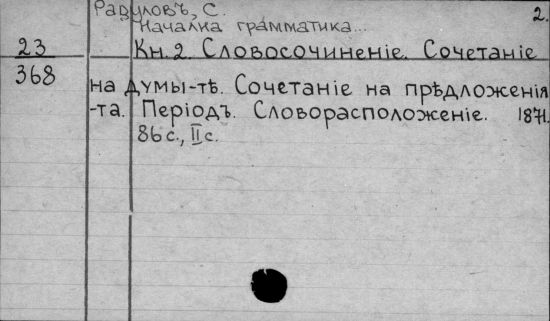 Радуловъ, С. 2.
Начална грамматика...
23 Кн. 2. Словосочиненіе. Сочетаніе
368 на думы-тѣ. Сочетаніе на прѣдложенія
-та. Періодъ. Словорасположеніе. 1871.
86 с., II с.